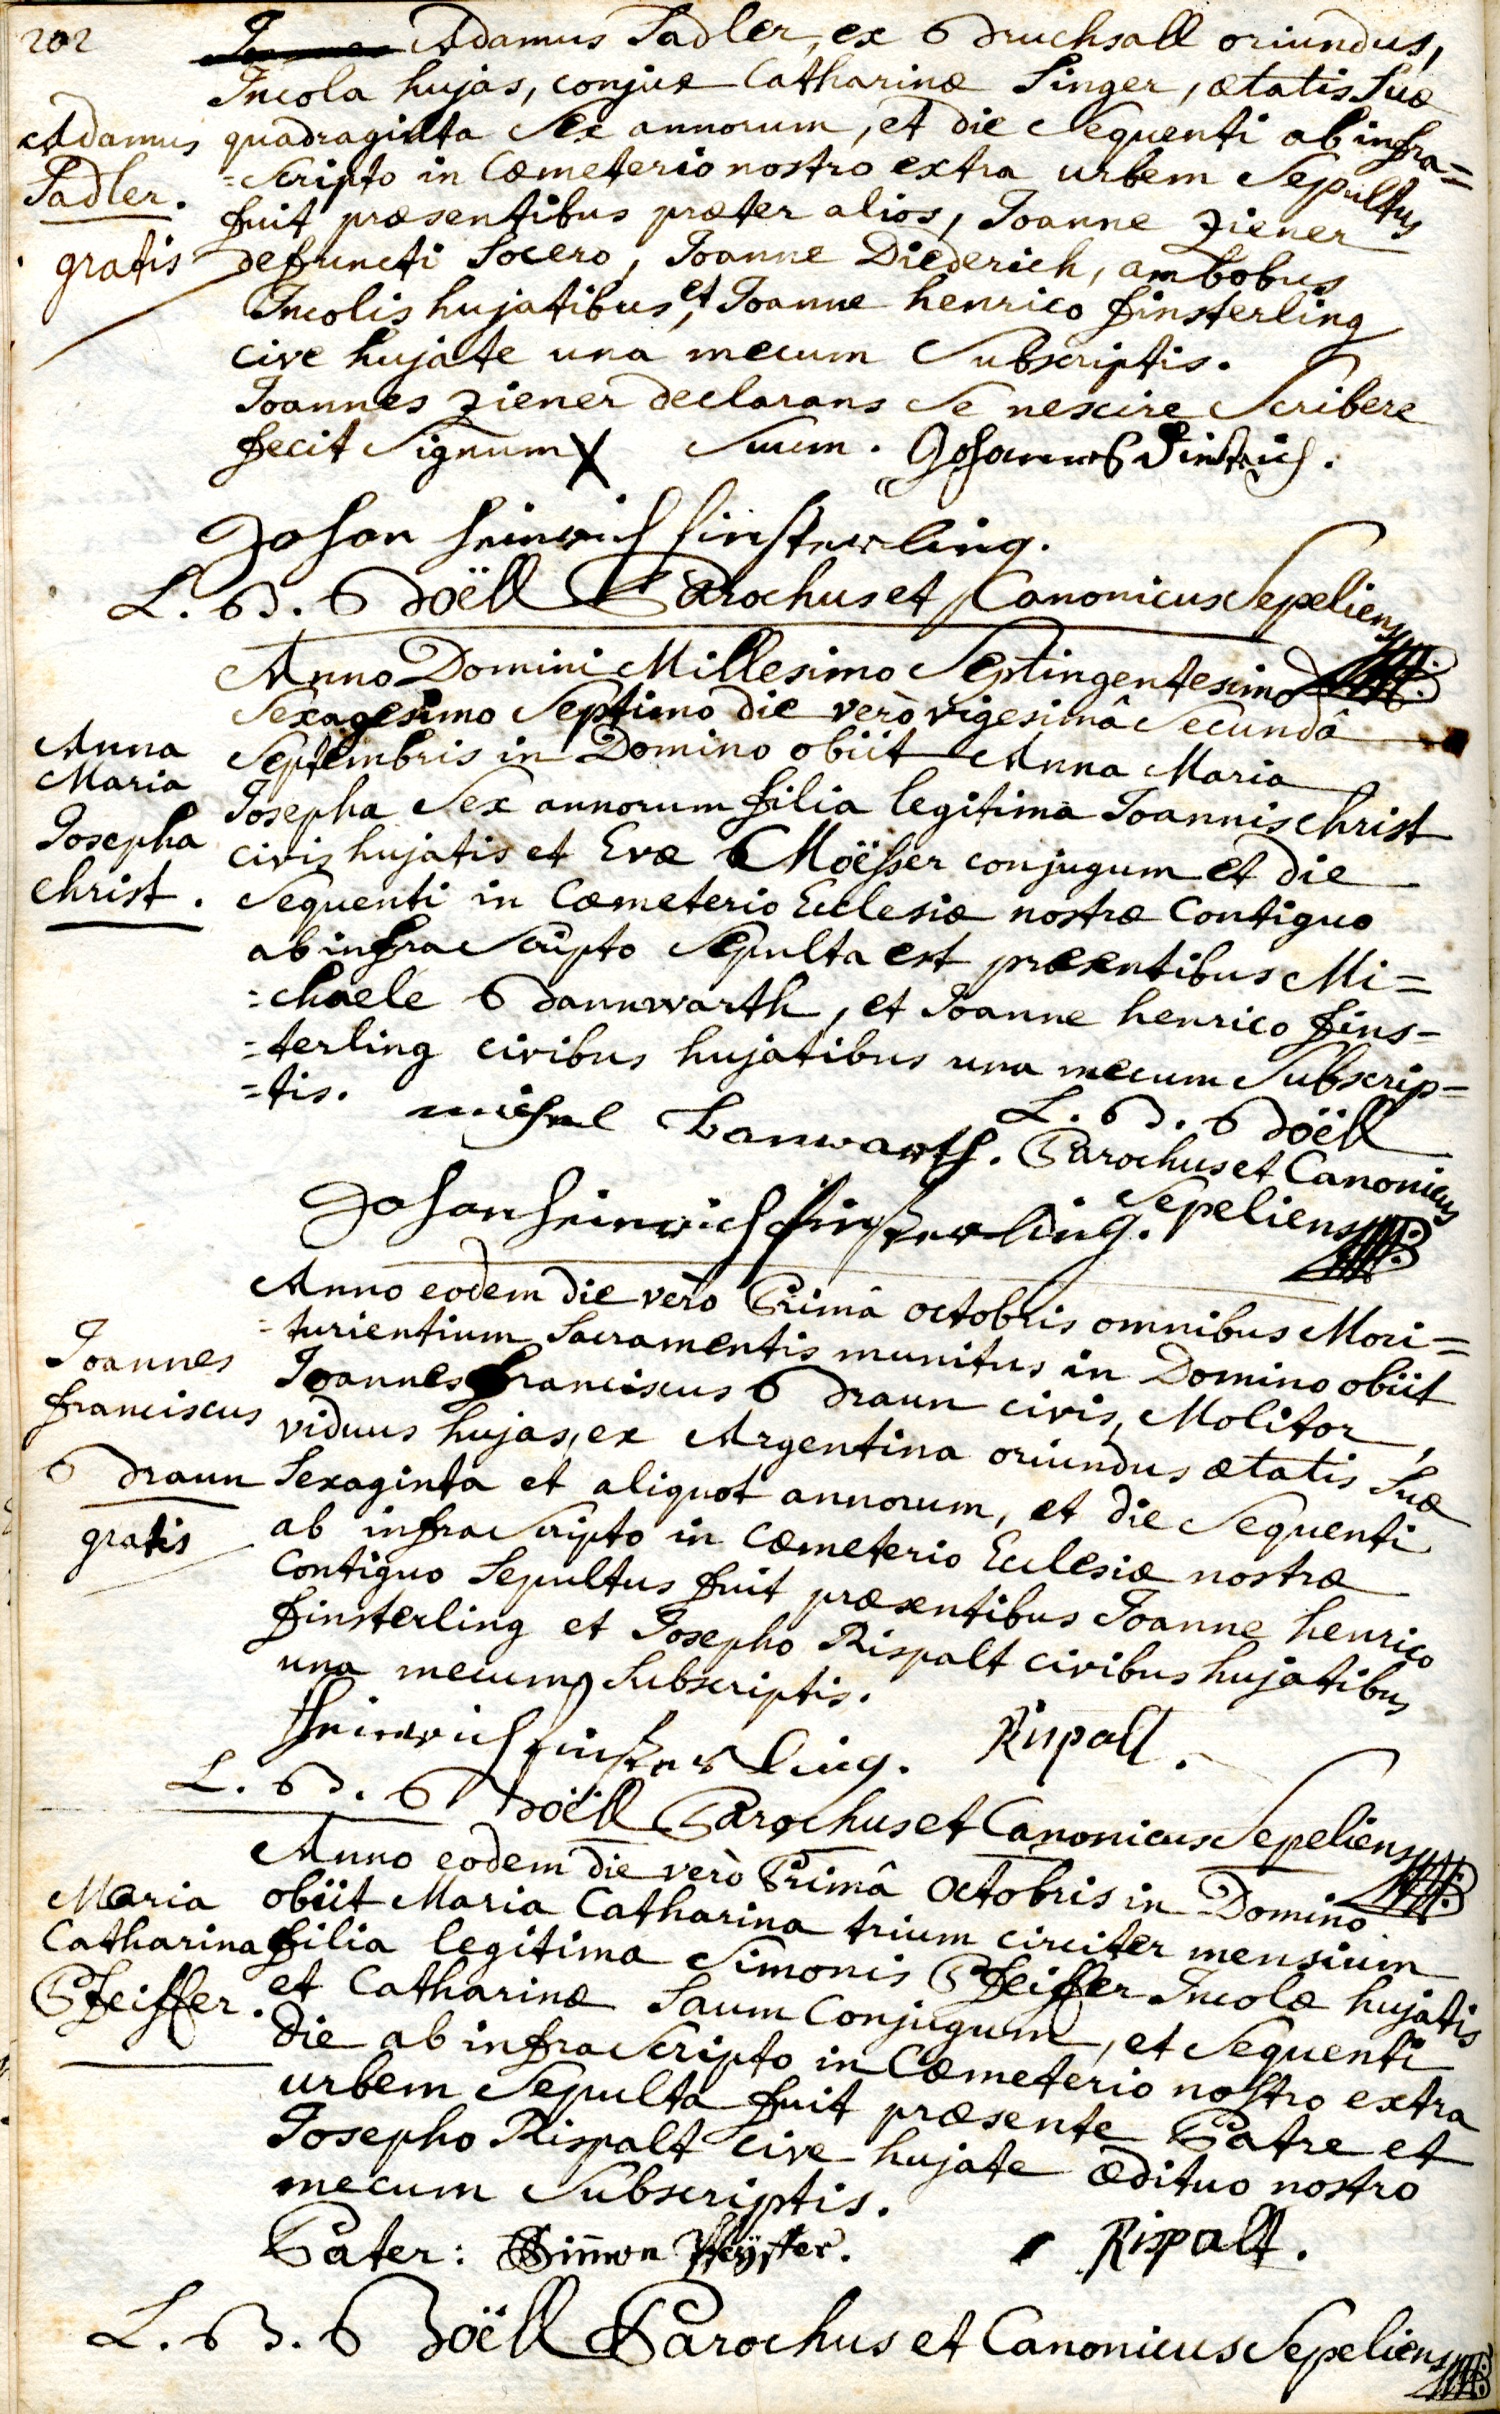 202
Adamus Sadler, ex Bruchsall oriundus,
Incola hujas, conjux Catharinæ Singer, ætatis suæ
Adamus
Sadler.
gratis
quadraginta sex annorum, et die sequenti ab infra=
=scripto in Cœmeterio nostro extra urbem sepultus
fuit præsentibus præter alios, Joanne Ziener
defuncti socero, Joanne Diederich, ambobus
Incolis hujatibus, et Joanne henrico finsterling
cive hujate una mecum subscriptis.
Joannes Ziener declarans se nescire scribere
fecit signum X suum. Johannes Dietrich.
Johan heinrich finsterling.
L. B. Böell Parochus et Canonicus sepeliens
Anno Domini Millesimo Septingentesimo
Sexagesimo Septimo die verò vigesimâ secundâ
Anna
Maria
Josepha
Christ.
Septembris in Domino obiit Anna Maria
Josepha sex annorum filia legitima Joannis Christ
civis hujatis et Evæ Moësser conjugum et die
sequenti in Cœmeterio Ecclesiæ nostræ contiguo
ab infra scripto sepulta est præsentibus Mi=
=chaele Bannwarth, et Joanne henrico fins=
=terling civibus hujatibus una mecum subscrip=
=tis. michel Banwarth. L. B. Böell
Parochus et Canonicus
Johan heinrich finsterling. Sepeliens
Anno eodem die verò Primâ octobris omnibus Mori=
=turientium Sacramentis munitus in Domino obiit
Joannes
franciscus
Braun
gratis
Joannes franciscus Braun civis, Molitor,
viduus hujas, ex Argentina oriundus ætatis suæ
Sexaginta et aliquot annorum, et die sequenti
ab infra scripto in Cœmeterio Ecclesiæ nostræ
contiguo sepultus fuit præsentibus Joanne henrico
finsterling et Josepho Rispalt civibus hujatibus
una mecum subscriptis.
heinrich finsterling. Rispalt.
L. B. Böell Parochus et Canonicus Sepeliens
Anno eodem die verò Primâ octobris in Domino
Maria
Catharina
Pfeiffer.
obiit Maria Catharina trium circiter mensium
filia legitima Simonis Pfeiffer Incolæ hujatis
et Catharinæ Saum Conjugum, et sequenti
die ab infra scripto in Cœmeterio nostro extra
urbem sepulta fuit præsente Patre et
Josepho Rispalt cive hujate ædituo nostro
mecum subscriptis.
Pater: Simon Pfeyffer. Rispalt.
L. B. Böell Parochus et Canonicus Sepeliens